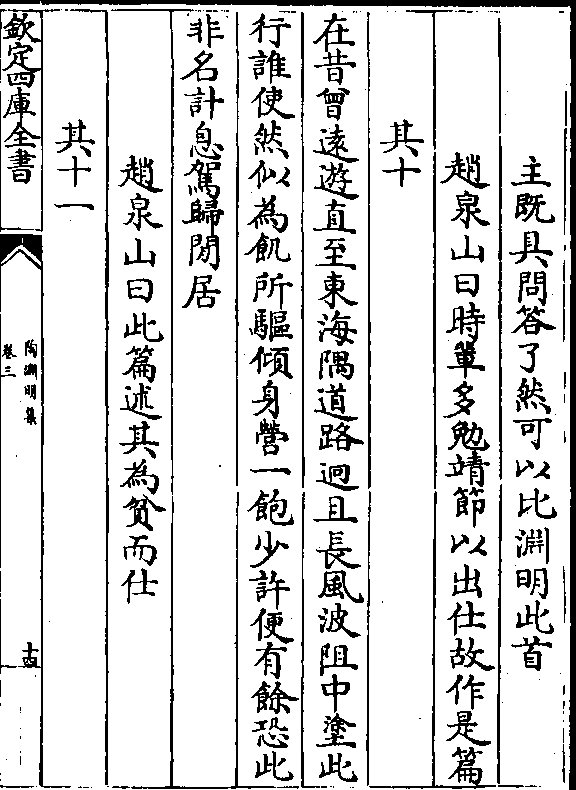 主既具問答了然可以比淵明此首
趙泉山曰時輩多勉靖節以出仕故作是篇
其十
在昔曾遠遊直至東海隅道路迥且長風波阻中塗此
行誰使然似為飢所驅傾身營一飽少許便有餘恐此
非名計息駕歸閒居
趙泉山曰此篇述其為貧而仕
其十一
欽定四庫全書
陶淵明集
卷三